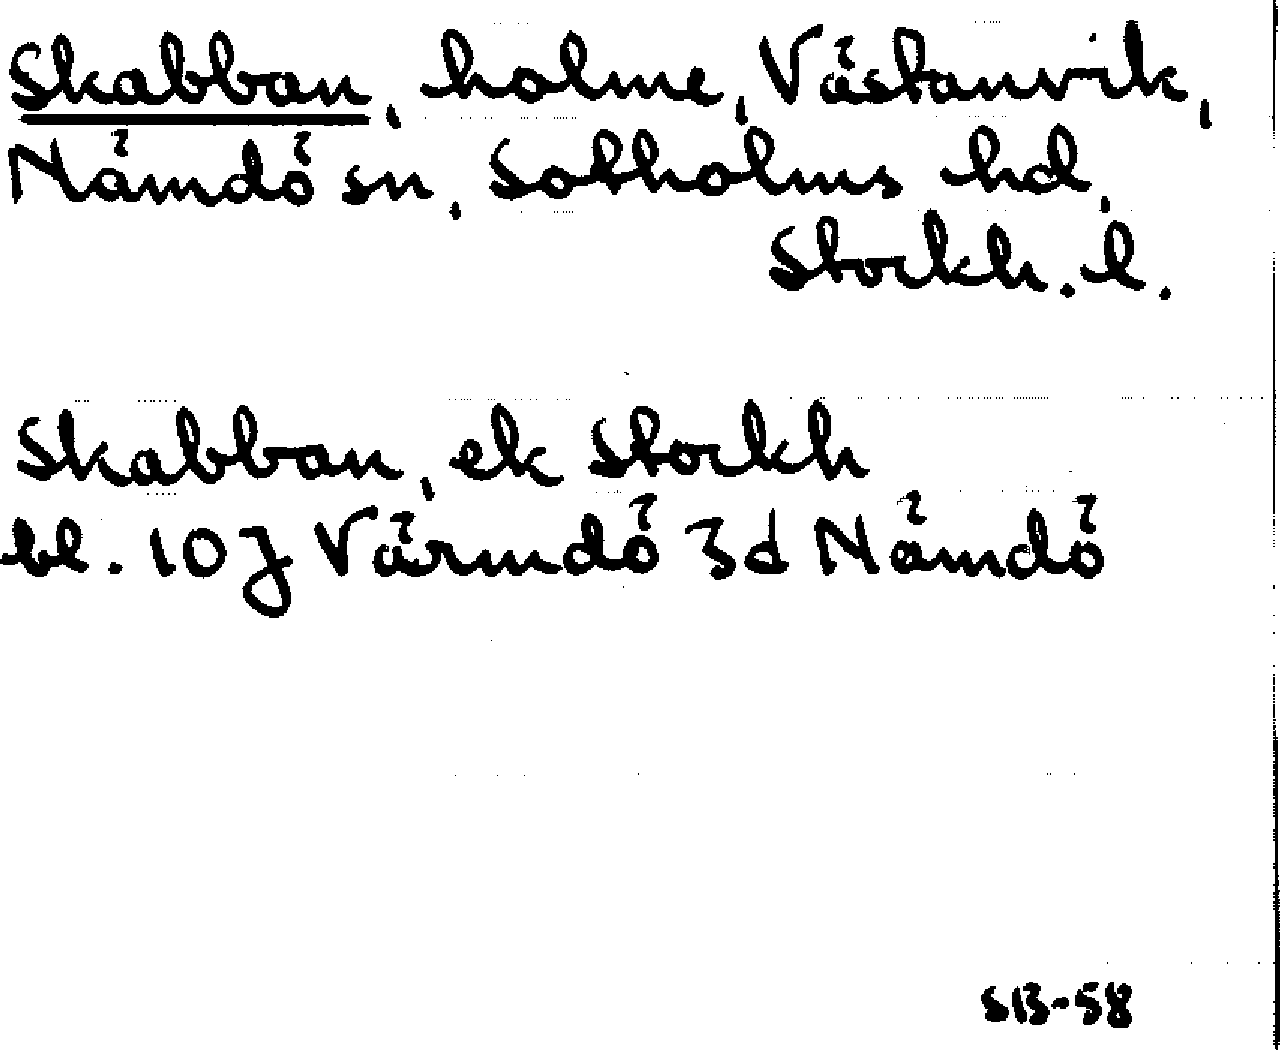 Skabban, holme, Västanvik,
Nämdö sn, Sotholms hd,
Stockh. l.
Skabban, ek Stockh
bl. 10J Värmdö 3d Nämdö
SB-58